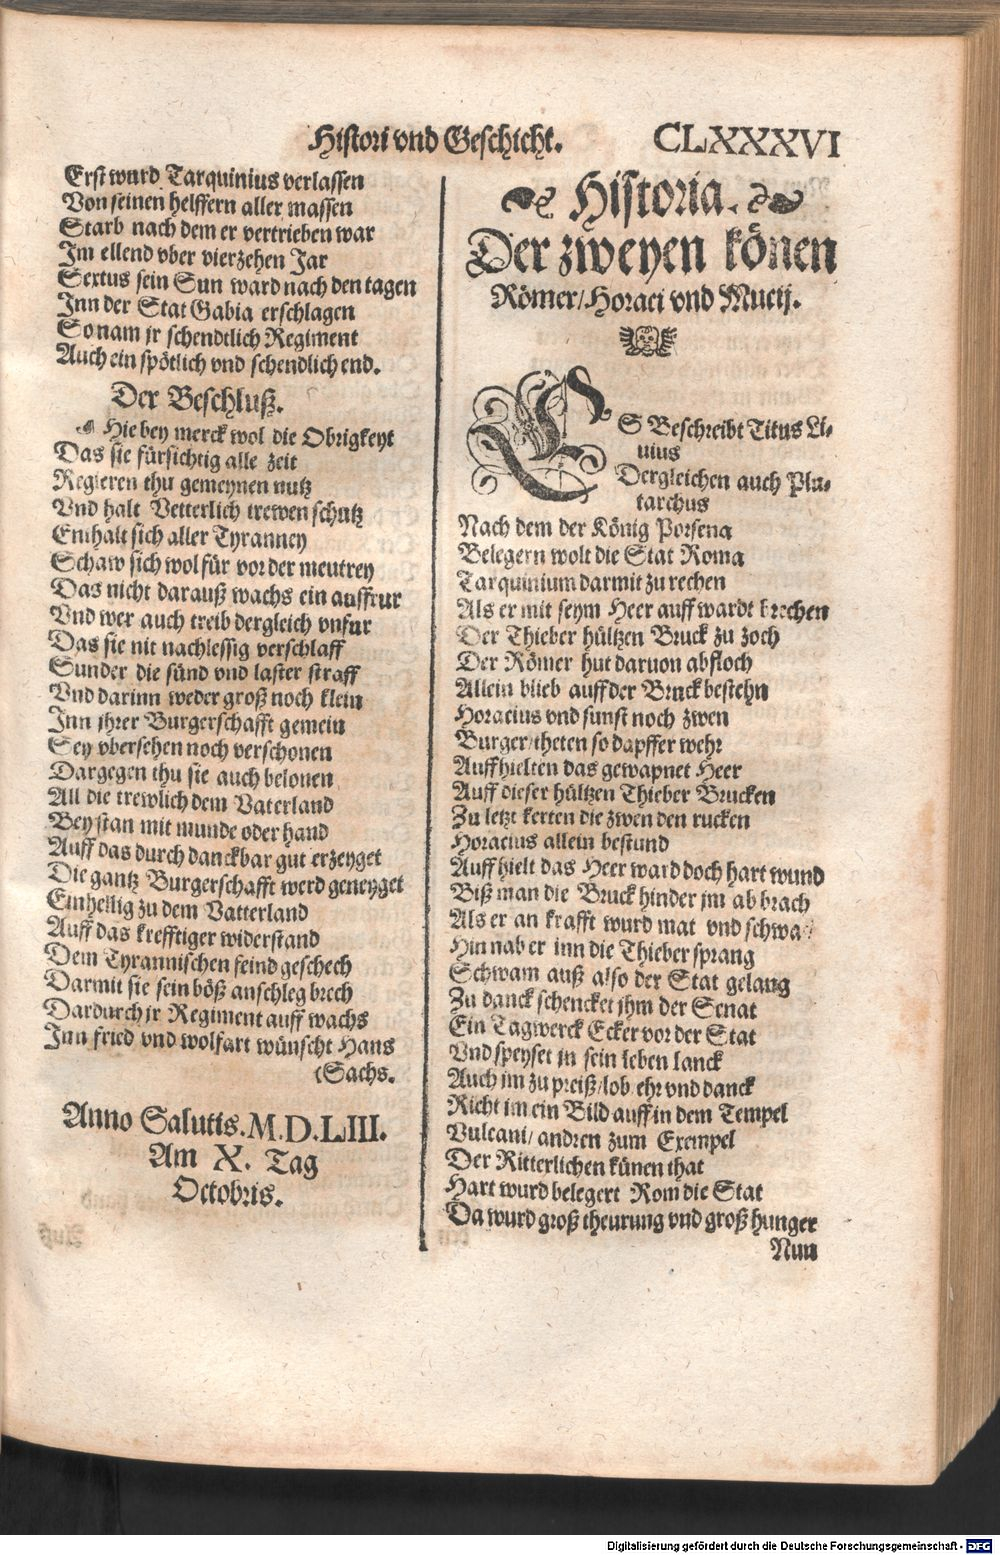 Histori vnd Geschicht. CLXXXVI
Erst wurd Tarquinius verlassen
Von seinen helffern aller massen
Starb nach dem er vertrieben war
Im ellend vber vierzehen Jar
Sextus sein Sun ward nach den tagen
Inn der Stat Gabia erschlagen
So nam jr schendtlich Regiment
Auch ein spötlich vnd schendlich end.
Der Beschluß.
Hie bey merck wol die Obrigkeyt
Das sie fürsichtig alle zeit
Regieren thu gemeynen nutz
Vnd halt Vetterlich trewen schutz
Enthalt sich aller Tyranney
Schaw sich wol für vor der meutrey
Das nicht darauß wachs ein auffrur
Vnd wer auch treib dergleich vnfur
Das sie nit nachlessig verschlaff
Sunder die sünd vnd laster straff
Vnd darinn weder groß noch klein
Inn jhrer Burgerschafft gemein
Sey vbersehen noch verschonen
Dargegen thu sie auch belonen
All die trewlich dem Vaterland
Bey stan mit munde oder hand
Auff das durch danckbar gut erzeyget
Die gantz Burgerschafft werd geneyget
Einhellig zu dem Vatterland
Auff das krefftiger widerstand
Dem Tyrannischen feind geschech
Darmit sie sein böß anschleg brech
Dardurch jr Regiment auff wachs
Inn fried vnd wolfart wünscht Hans
(Sachs.
Anno Salutis. M.D.LIII.
Am X. Tag
Octobris.
Historia.
Der zweyen könen
Römer/ Horaci vnd Mucij.
ES Beschreibt Titus Li-
uius
Dergleichen auch Plu-
tarchus
Nach dem der König Porsena
Belegern wolt die Stat Roma
Tarquinium darmit zu rechen
Als er mit seym Heer auff wardt brechen
Der Thieber hültzen Bruck zu zoch
Der Römer hut daruon abfloch
Allein blieb auff der Bruck bestehn
Horacius vnd sunst noch zwen
Burger/ theten so dapffer wehr
Auffhielten das gewapnet Heer
Auff dieser hültzen Thieber Brucken
Zu letzt kerten die zwen den rucken
Horacius allein bestund
Auff hielt das Heer ward doch hart wund
Biß man die Bruck hinder jm ab brach
Als er an krafft wurd mat vnd schwa
Hin nab er inn die Thieber sprang
Schwam auß also der Stat gelang
Zu danck schencket jhm der Senat
Ein Tagwerck Ecker vor der Stat
Vnd speyset jn sein leben lanck
Auch jm zu preiß/ lob ehr vnd danck
Richt im ein Bild auff in dem Tempel
Vulcani/ andren zum Exempel
Der Ritterlichen künen that
Hart wurd belegert Rom die Stat
Da wurd groß theurung vnd groß hunger
Nun
Digitalisierung gefördert durch die Deutsche Forschungsgemeinschaft - DFG